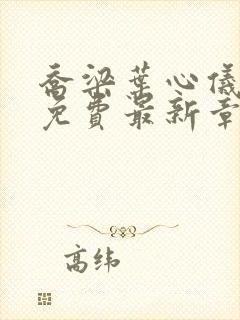 乔梁葉心儀
免費最新章
高纬